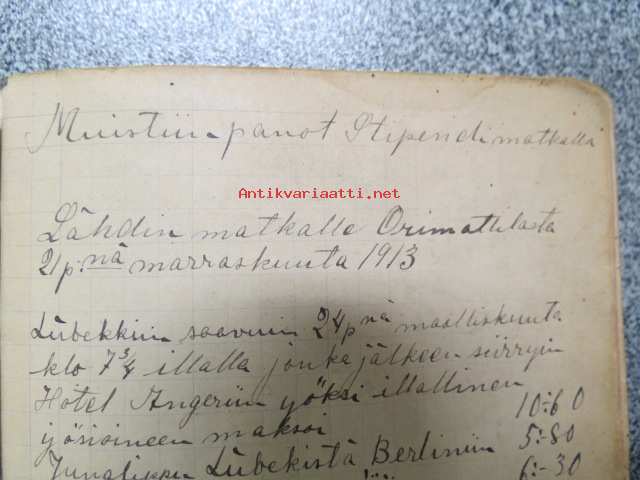 Muistiin-panot Stipendimatkalla
Antikvariaatti.net
Lähdin matkalle Orimattilasta
21p:nä marraskuuta 1913
Lübekkiin saavuin 24pnä maalliskuuta
klo 7 3/4 illalla jonka jälkeen siirryin
Hotel Angeriin yöksi illallinen
yösioineen maksoi 10:60
Lübekistä Berliniin 5:-80
6:-30